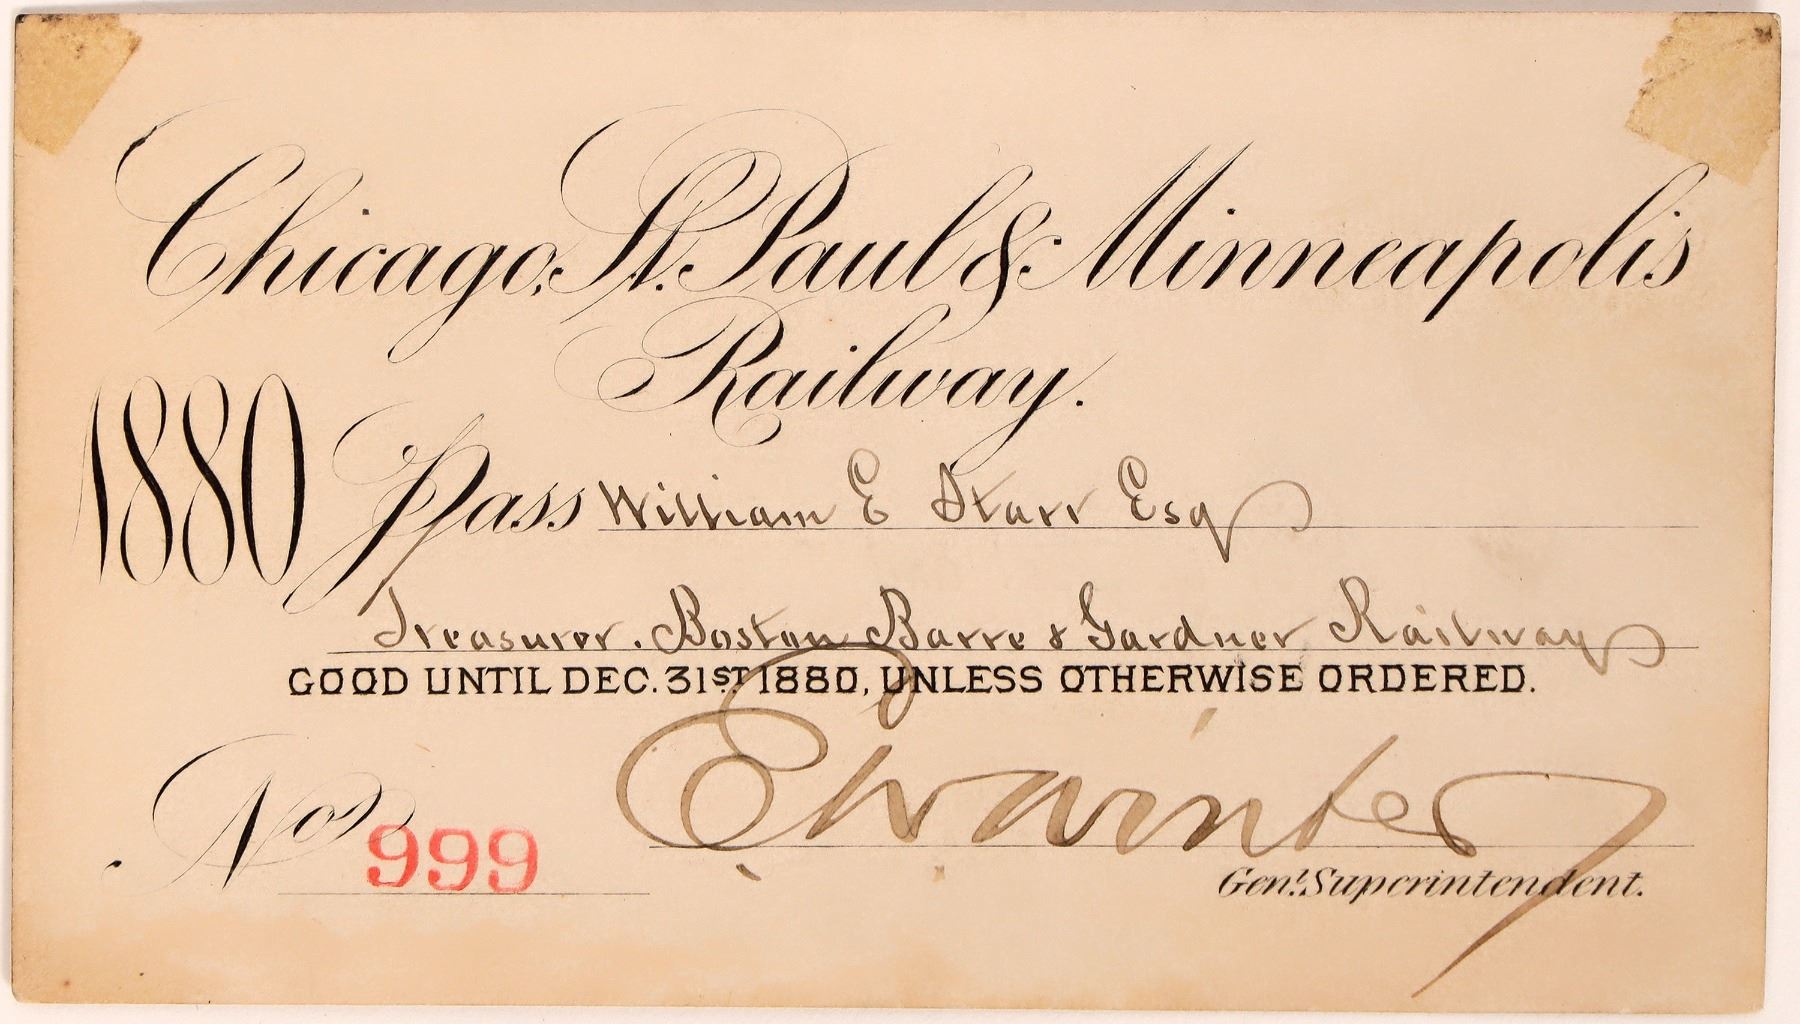 Chicago, St. Paul & Minneapolis
Railway.
1880 Pass William E Starr Esq
Treasurer. Boston Barre & Gardner Railway
GOOD UNTIL DEC. 31ST 1880, UNLESS OTHERWISE ORDERED.
No 999
E W Winter
Gen'l Superintendent.